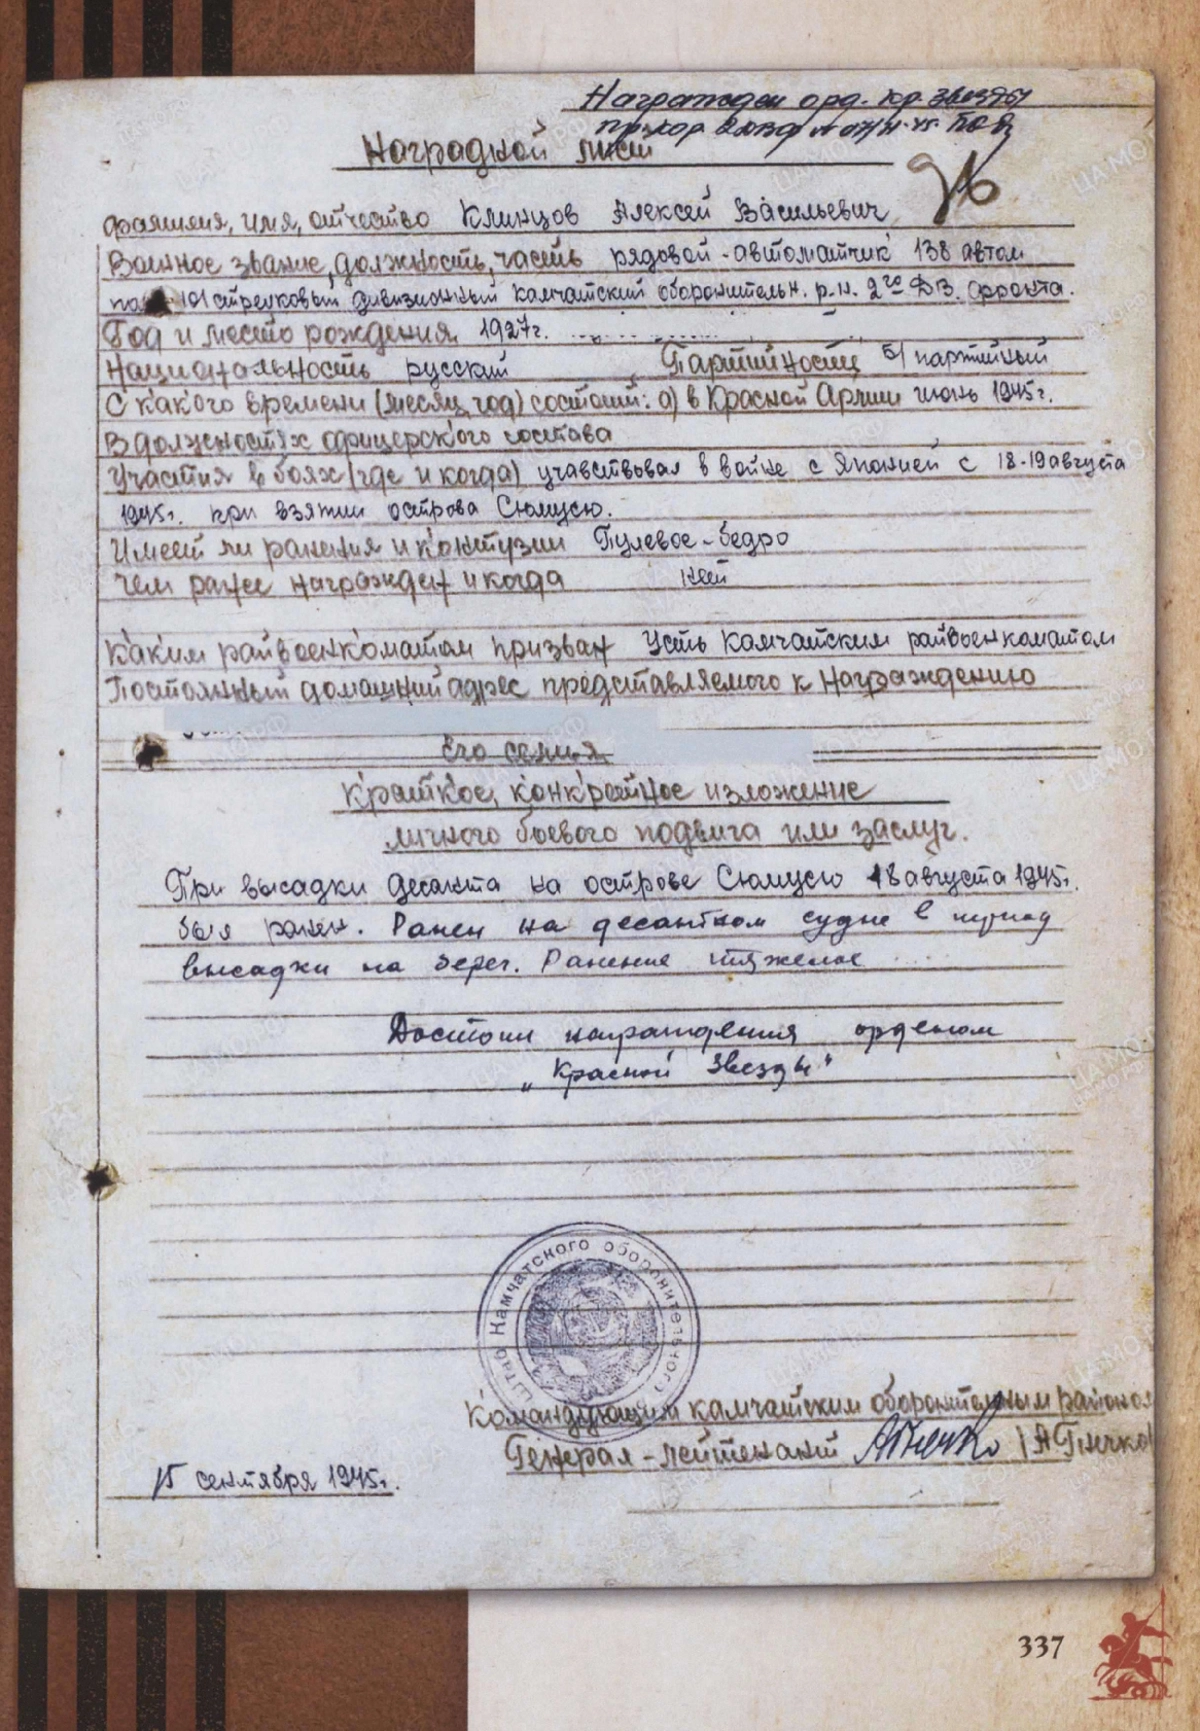 Награжден орд. Кр. Звезды
Наградной лист
Фамилия, имя, отчество Клинцов Алексей Васильевич
Воинское звание, должность, часть рядовой-автоматчик 138 автом
101 стрелковый дивизионный камчатский оборонительн. р.н. 2го ДВ. фронта.
Год и место рождения 1927г.
Национальность русский Партийность б/партийный
С какого времени (месяц, год) состоит: а) в Красной Армии июнь 1945г.
В должностях офицерского состава
Участия в боях (где и когда) учавствовал в войне с Японией с 18-19 августа
1945г. при взятии острова Сюмусю.
Имеет ли ранения и контузии Пулевое-бедро
Чем ранее награжден и когда нет
Каким райвоенкоматом призван Усть Камчатским райвоенкоматом
Постоянный домашний адрес представляемого к награждению
Его семья
Краткое, конкретное изложение
личного боевого подвига или заслуг.
При высадки десанта на острове Сюмусю 18 августа 1945г.
был ранен. Ранен на десантном судне в период
высадки на берег. Ранение тяжелое
Достоин награждения орденом
„Красной Звезды"
Штаб Камчатского оборонительного
Командующий камчатским оборонительным районом
Генерал-лейтенант /А Гнечко/
15 сентября 1945г.
337